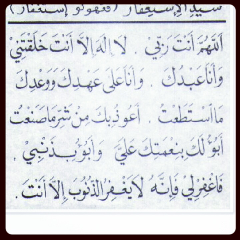 سيد الإستغفار (فغهولو إستغفار)
اَللّٰهُمَّ أَنْتَ رَبِّي . لَا اِلٰهَ اِلَّا أَنْتَ خَلَقْتَنِي
وَأَنَا عَبْدُكَ . وَأَنَا عَلَى عَهْدِكَ وَوَعْدِكَ
مَا اسْتَطَعْتُ . أَعُوذُ بِكَ مِنْ شَرِّ مَا صَنَعْتُ
أَبُوْءُ لَكَ بِنِعْمَتِكَ عَلَيَّ وَأَبُوْءُ بِذَنْبِيْ .
فَاغْفِرْلِي فَإِنَّهُ لَا يَغْفِرُ الذُّنُوْبَ إِلَّا أَنْتَ .